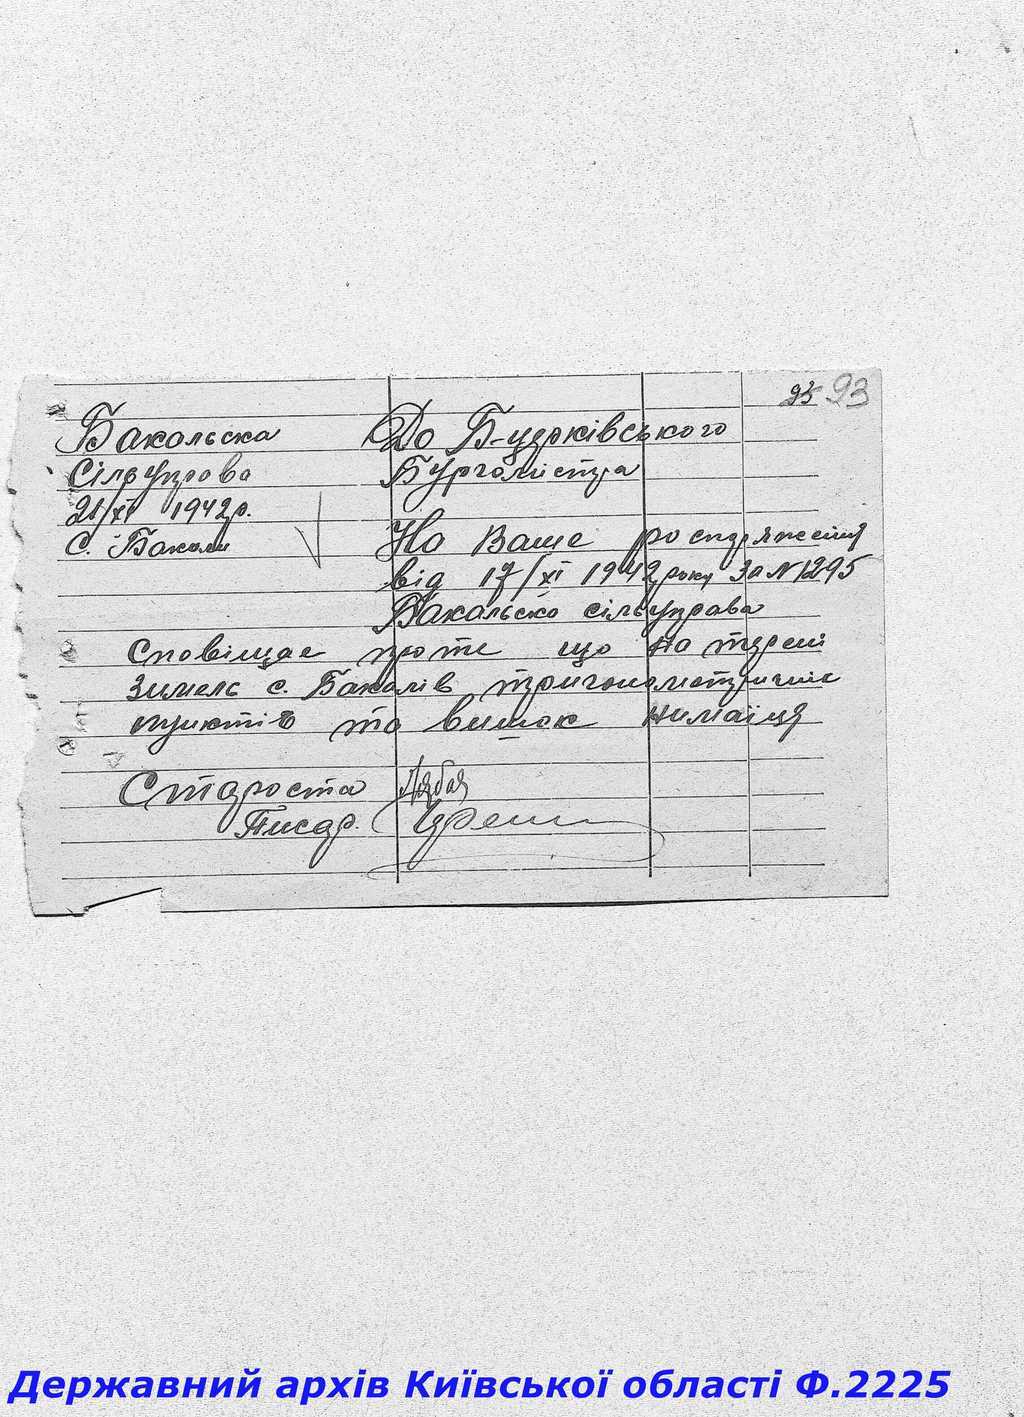 93
Бакальска
Сільуправа
21/XI 1942р.
с. Бакали
До Б-церківського
Бургомістра
На Ваше роспаряження
від 17/XI 1942 року За N 1295
Бакальска сільуправа
Сповіщає проте що на терені
Зимель с. Бакалів тригонометричних
пунктів та вишок нимаїця
Староста
Писар.
Державний архів Київської області Ф.2225